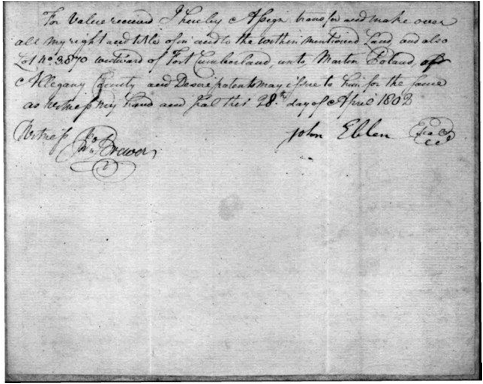 For Value received I hereby Assign transfer and make over
all my right and title of in and to the within mentioned Land and also
Lot No 3870 westward of Fort Cumberland unto Martin Poland of
Allegany County and Desire patents may issue to him for the same
as Witness my hand and Seal this 28th day of April 1803
Witness John Eblen Seal
Jno Brewer